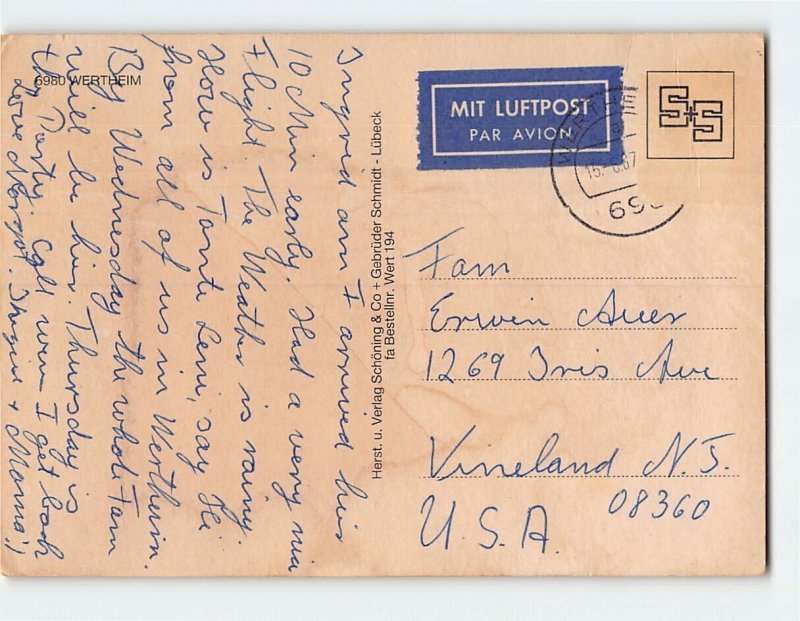 6980 WERTHEIM
Ingrid am I arrived hier
10 Min early. Had a verry nia
Flight. The Weather is rainy.
How is Tante Leni, say Hi
from all of us in Wertheim.
By Wednesday the whole Fam
will be hier. Thursday is
the Party. Call wen I get back
Love Margot. Ingrid + Mama!)
Herst. u. Verlag Schöning & Co + Gebrüder Schmidt - Lübeck
fa Bestellnr. Wert 194
MIT LUFTPOST
PAR AVION
S+S
WERTHEIM
15.-6.87
Fam
Erwin Auer
1269 Iris Ave
Vineland N.J.
08360
U.S.A.